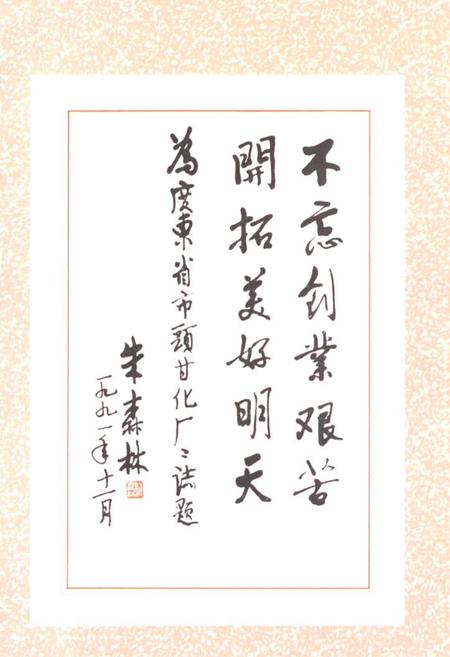 不忘创業艰苦
開拓美好明天
為廣東省市頭甘化厂厂誌題
朱森林
一九九一年十一月